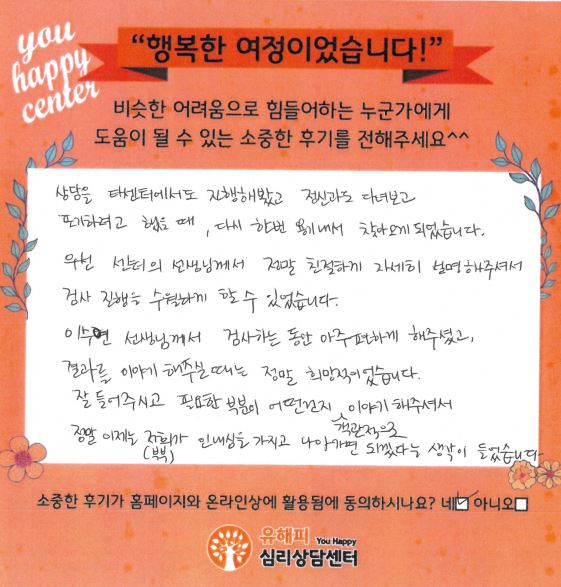 you
happy
center
“행복한 여정이었습니다!”
비슷한 어려움으로 힘들어하는 누군가에게
도움이 될 수 있는 소중한 후기를 전해주세요^^
상담을 타센터에서도 진행해봤고 정신과도 다녀보고
포기하려고 했을 때, 다시 한번 용기내서 찾아오게 되었습니다.
우선 센터의 선생님께서 정말 친절하게 자세히 설명해주셔서
검사 진행을 수월하게 할 수 있었습니다.
이수연 선생님께서 검사하는 동안 아주 편하게 해주셨고,
결과를 이야기 해주실 때는 정말 희망적이었습니다.
잘 들어주시고 필요한 부분이 어떤건지 객관적으로 이야기 해주셔서
정말 이제는 저희가 (부부) 인내심을 가지고 나아가면 되겠다는 생각이 들었습니다
소중한 후기가 홈페이지와 온라인상에 활용됨에 동의하시나요? 네☑ 아니오☐
유해피 You Happy
심리상담센터